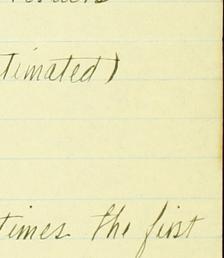 timated)
times the first